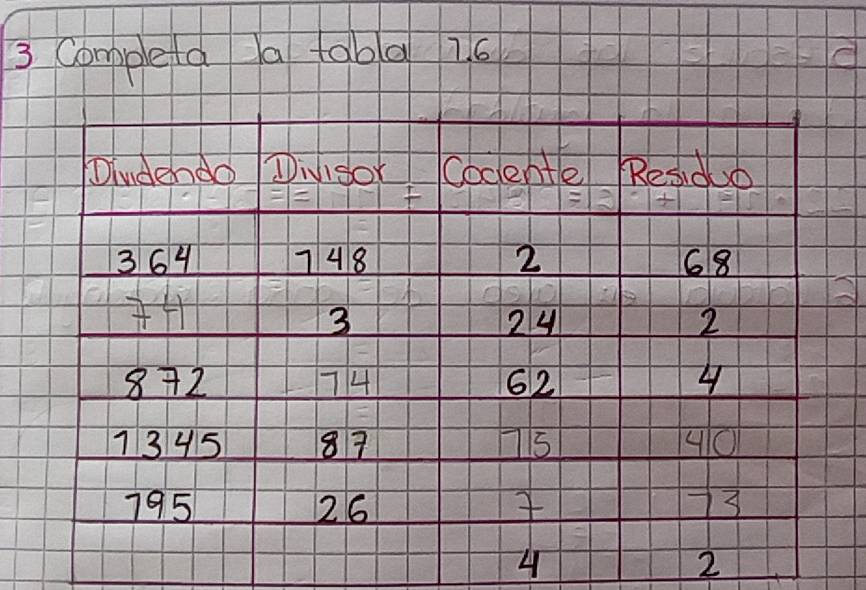 3 Completa la tabla 1.6
Dividendo Divisor Cociente Residuo
364 148 2 68
74 3 24 2
872 14 62 4
1345 87 15 40
195 26 7 13
4 2